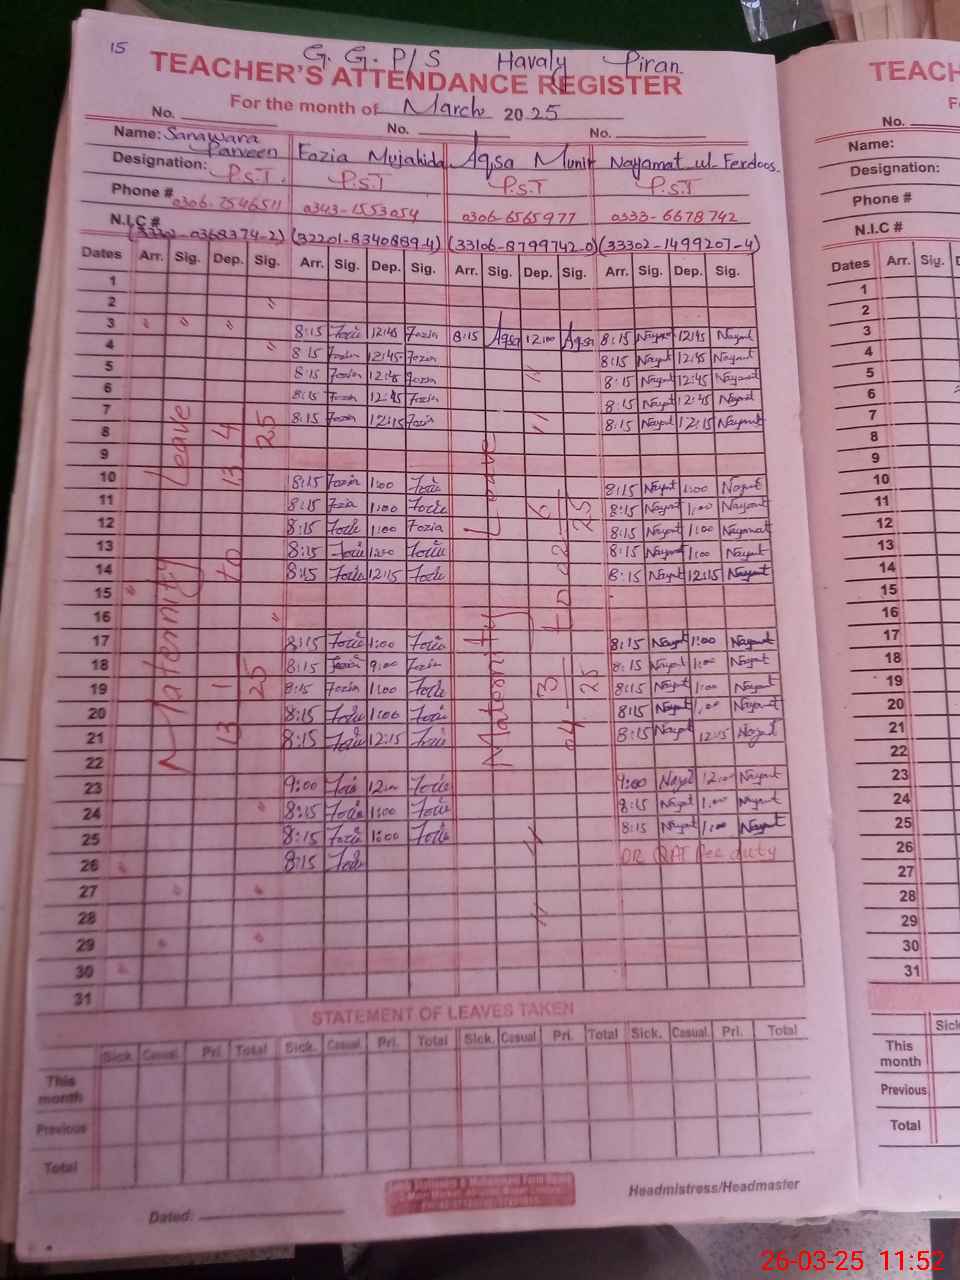 15
G. G. P/S Havaly Piran
TEACHER'S ATTENDANCE REGISTER
For the month of March 2025
TEACH
No. No. No. No.
Name: Sarawara Parveen Fozia Mujahida Aqsa Munir Nayamat ul Ferdoos. Name:
Designation: P.S.T. P.S.T P.S.T P.S.T Designation:
Phone # 0306-7546511 0343-1553054 0306-6565977 0333-6678742 Phone #
N.I.C # (33302-0368374-2) (32201-8340889-4) (33106-8799742-0) (33302-1499207-4) N.I.C #
Dates Arr. Sig. Dep. Sig. Arr. Sig. Dep. Sig. Arr. Sig. Dep. Sig. Arr. Sig. Dep. Sig. Dates Arr. Sig.
1 1
2 2
3 8:15 Fozia 12:45 Fozia 8:15 Aqsa 12:00 Aqsa 8:15 Nayamt 12:45 Nayamt 3
4 8:15 Fozia 12:45 Fozia 8:15 Nayamt 12:45 Nayamt 4
5 8:15 Fozia 12:45 Fozia 8:15 Nayamt 12:45 Nayamt 5
6 8:15 Fozia 12:45 Fozia 8:15 Nayamt 12:45 Nayamt 6
7 8:15 Fozia 12:15 Fozia 8:15 Nayamt 12:15 Nayamt 7
8 8
9 9
10 8:15 Fozia 1:00 Fozia 8:15 Nayamt 1:00 Nayamt 10
11 8:15 Fozia 1:00 Fozia 8:15 Nayamt 1:00 Nayamt 11
12 8:15 Fozia 1:00 Fozia 8:15 Nayamt 1:00 Nayamat 12
13 8:15 Fozia 1:00 Fozia 8:15 Nayamt 1:00 Nayamt 13
14 8:15 Fozia 12:15 Fozia 8:15 Nayamt 12:15 Nayamt 14
15 15
16 16
17 8:15 Fozia 1:00 Fozia 8:15 Nayamt 1:00 Nayamt 17
18 8:15 Fozia 9:00 Fozia 8:15 Nayamt 1:00 Nayamt 18
19 8:15 Fozia 1:00 Fozia 8:15 Nayamt 1:00 Nayamt 19
20 8:15 Fozia 1:00 Fozia 8:15 Nayamt 1:00 Nayamt 20
21 8:15 Fozia 12:15 Fozia 8:15 Nayamt 12:15 Nayamt 21
22 22
23 9:00 Fozia 12:00 Fozia 9:00 Nayamt 12:00 Nayamt 23
24 8:15 Fozia 1:00 Fozia 8:15 Nayamt 1:00 Nayamt 24
25 8:15 Fozia 1:00 Fozia 8:15 Nayamt 1:00 Nayamt 25
26 8:15 Fozia duty 26
27 27
28 28
29 29
30 30
31 31
Maternity Leave
13 1 25 to 13 4 25
Maternity Leave
04 3 25 to 02 6 25
STATEMENT OF LEAVES TAKEN
Sick. Casual. Pri. Total Sick. Casual. Pri. Total Sick. Casual Pri. Total Sick. Casual. Pri. Total Sick
This month This month
Previous Previous
Total Total
Dated:
Headmistress/Headmaster
26-03-25 11:52